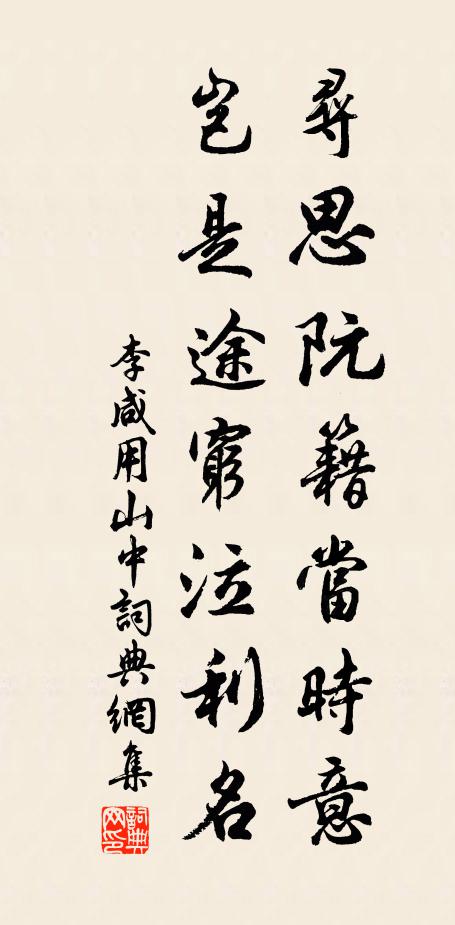 尋思阮籍當時意
豈是途窮泣利名
李咸用山中詞典網集
詞典網印